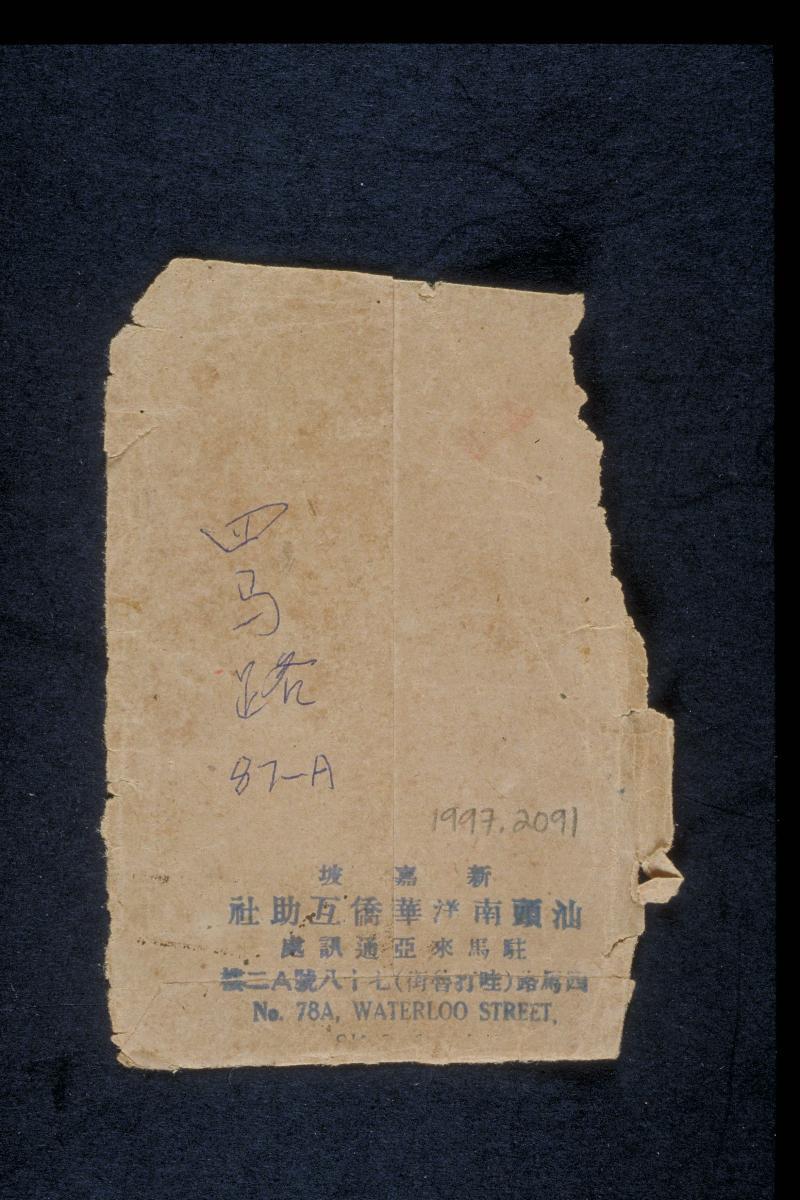 四马路
87-A
1997.2091
新嘉坡
汕頭南洋華僑互助社
駐馬來亞通訊處
四馬路(哇打魯街)七十八號A二樓
No. 78A, WATERLOO STREET,